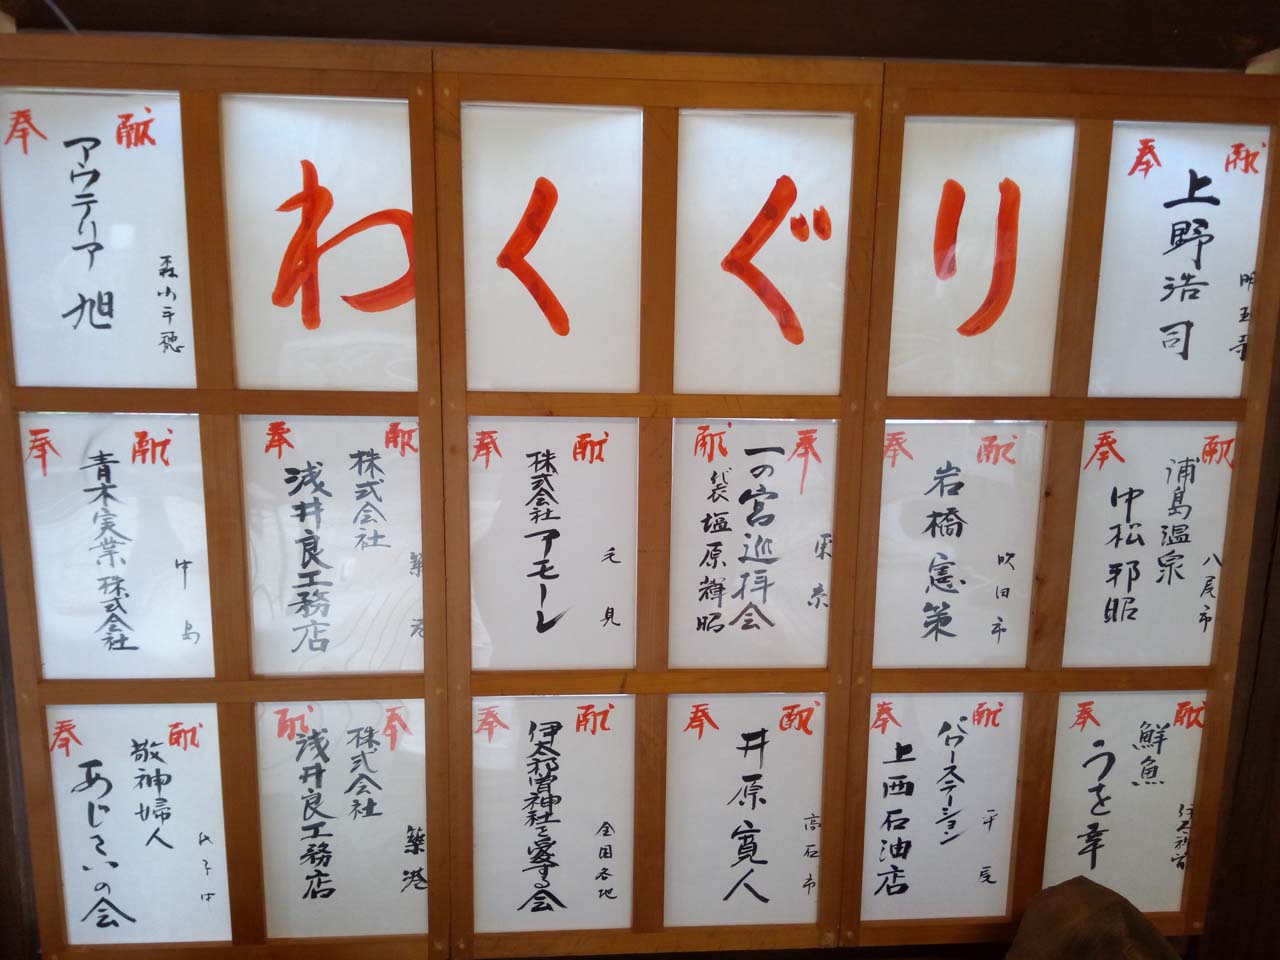 奉 献
アウテリア 旭
わくぐり
奉 献
上野浩司
奉 献
青木実業株式会社
中島
奉 献
株式会社
浅井良工務店
築港
奉 献
株式会社アモーレ
毛見
献 奉
一の宮巡拝会
代表 塩原輝昭
東京
奉 献
岩橋憲策
吹田市
奉 献
浦島温泉
中松邦昭
八尾市
奉 献
敬神婦人
あじさいの会
献 奉
株式会社
浅井良工務店
築港
奉 献
伊太祁曽神社を愛する会
全国各地
奉 献
井原寛人
高石市
奉 献
パワーステーション
上西石油店
平尾
奉 献
鮮魚
うを幸